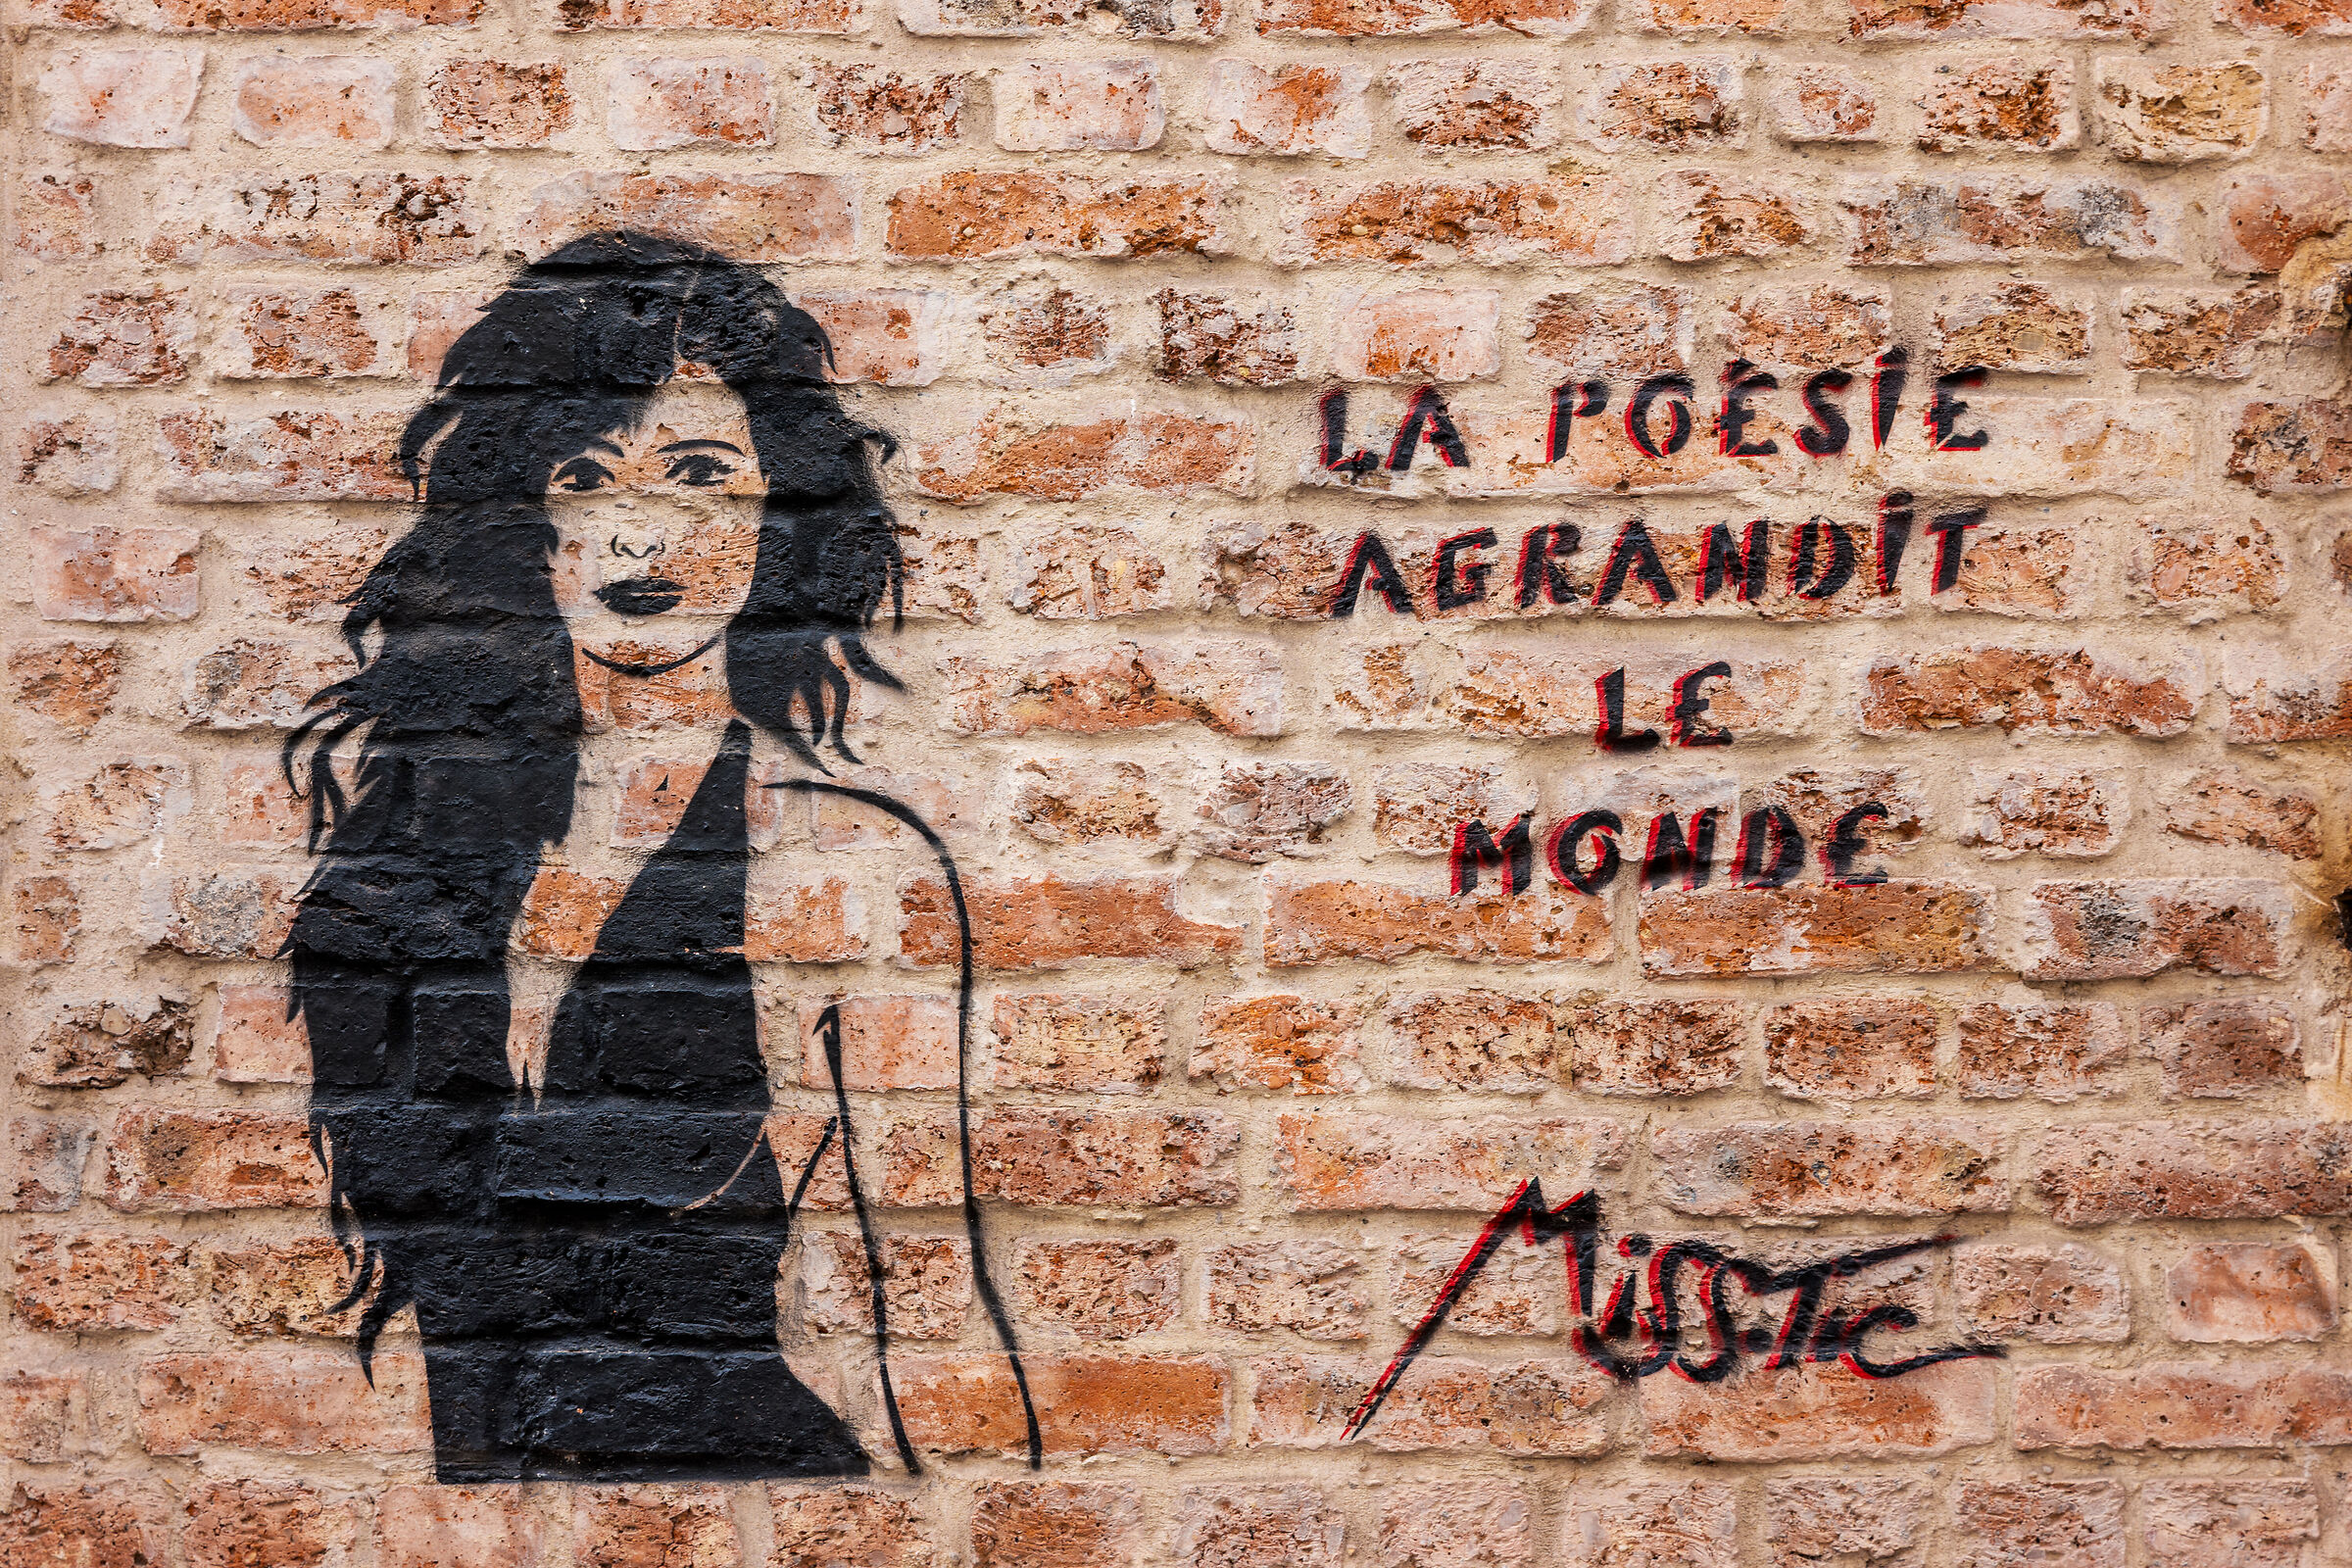 LA POÈSIE
AGRANDIT
LE
MONDE
MISS.TIC